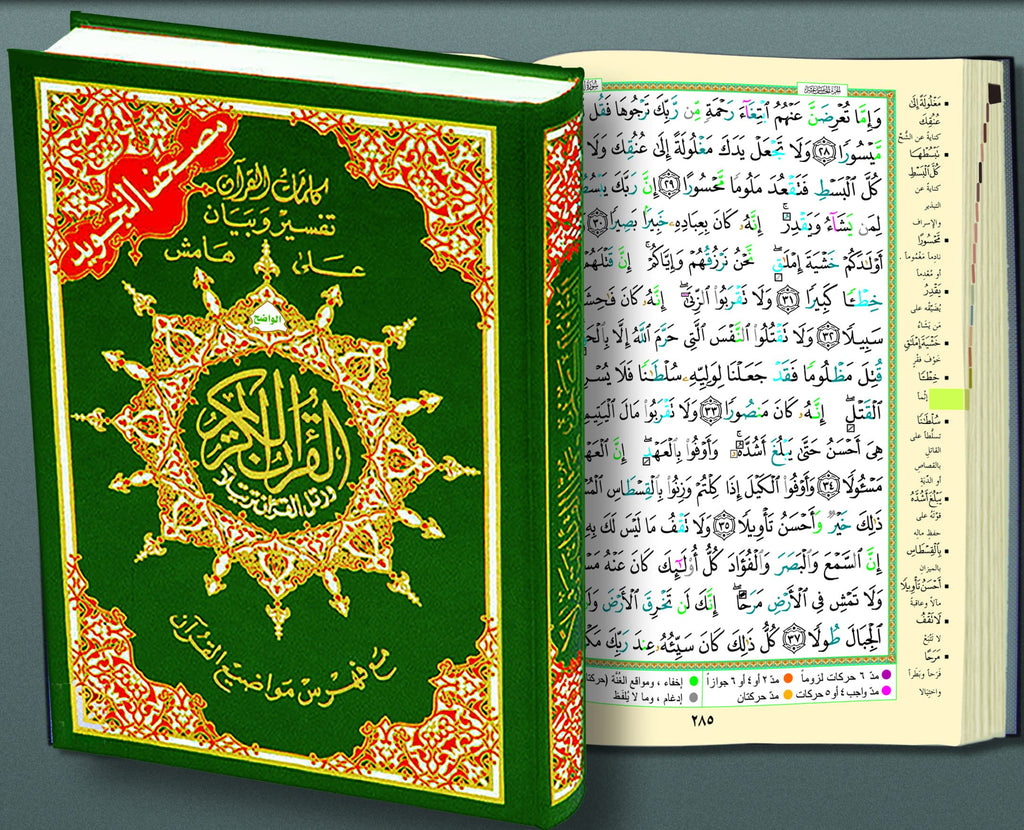 مصحف التجويد
كلمات القرآن
تفسير وبيان
على هامش
الواضح
القرآن الكريم
ورتل القرآن ترتيلا
مع فهرس مواضيع القرآن
وَإِمَّا تُعْرِضَنَّ عَنْهُمُ ٱبْتِغَآءَ رَحْمَةٍ مِّن رَّبِّكَ تَرْجُوهَا فَقُل
مَّيْسُورًا ٢٨ وَلَا تَجْعَلْ يَدَكَ مَغْلُولَةً إِلَىٰ عُنُقِكَ وَلَا
كُلَّ ٱلْبَسْطِ فَتَقْعُدَ مَلُومًا مَّحْسُورًا ٢٩ إِنَّ رَبَّكَ يَبْسُطُ
لِمَن يَشَآءُ وَيَقْدِرُ ۚ إِنَّهُۥ كَانَ بِعِبَادِهِۦ خَبِيرًۢا بَصِيرًا ٣٠
أَوْلَٰدَكُمْ خَشْيَةَ إِمْلَٰقٍ ۖ نَّحْنُ نَرْزُقُهُمْ وَإِيَّاكُمْ ۚ إِنَّ قَتْلَهُمْ
خِطْـًٔا كَبِيرًا ٣١ وَلَا تَقْرَبُوا۟ ٱلزِّنَىٰٓ ۖ إِنَّهُۥ كَانَ فَٰحِشَةً
سَبِيلًا ٣٢ وَلَا تَقْتُلُوا۟ ٱلنَّفْسَ ٱلَّتِى حَرَّمَ ٱللَّهُ إِلَّا
قُتِلَ مَظْلُومًا فَقَدْ جَعَلْنَا لِوَلِيِّهِۦ سُلْطَٰنًا فَلَا
ٱلْقَتْلِ ۖ إِنَّهُۥ كَانَ مَنصُورًا ٣٣ وَلَا تَقْرَبُوا۟ مَالَ ٱلْيَتِيمِ
هِىَ أَحْسَنُ حَتَّىٰ يَبْلُغَ أَشُدَّهُۥ ۚ وَأَوْفُوا۟ بِٱلْعَهْدِ ۖ إِنَّ ٱلْعَهْدَ
مَسْـُٔولًا ٣٤ وَأَوْفُوا۟ ٱلْكَيْلَ إِذَا كِلْتُمْ وَزِنُوا۟ بِٱلْقِسْطَاسِ
ذَٰلِكَ خَيْرٌ وَأَحْسَنُ تَأْوِيلًا ٣٥ وَلَا تَقْفُ مَا لَيْسَ لَكَ بِهِۦ
إِنَّ ٱلسَّمْعَ وَٱلْبَصَرَ وَٱلْفُؤَادَ كُلُّ أُو۟لَٰٓئِكَ كَانَ عَنْهُ
وَلَا تَمْشِ فِى ٱلْأَرْضِ مَرَحًا ۖ إِنَّكَ لَن تَخْرِقَ ٱلْأَرْضَ
ٱلْجِبَالَ طُولًا ٣٧ كُلُّ ذَٰلِكَ كَانَ سَيِّئُهُۥ عِندَ رَبِّكَ
مَغْلُولَةً إِلَى
عُنُقِكَ
كناية عن الشُّحّ
تَبْسُطْهَا
كُلَّ الْبَسْطِ
كناية عن
التبذير
والإسراف
مَّحْسُورًا
نادماً مغموماً
أو مُعدِماً
يَقْدِرُ
يُضيّقه على
من يشاء
خَشْيَةَ إِمْلَاقٍ
خوف فقر
خِطْئًا
إثماً
سُلْطَانًا
تسلُّطاً على
القاتل
بالقصاص
أو الدّية
يَبْلُغَ أَشُدَّهُ
قوّته على
حفظ ماله
بِالْقِسْطَاسِ
بالميزان
أَحْسَنُ تَأْوِيلًا
مآلاً وعاقبة
لَا تَقْفُ
لا تتّبع
مَرَحًا
فرحاً وبطراً
واختيالا
مدّ ٦ حركات لزوماً
مدّ ٢ أو ٤ أو ٦ جوازاً
إخفاء ، ومواقع الغُنَّة
مدّ واجب ٤ أو ٥ حركات
مدّ حركتان
إدغام ، وما لا يُلفَظ
٢٨٥